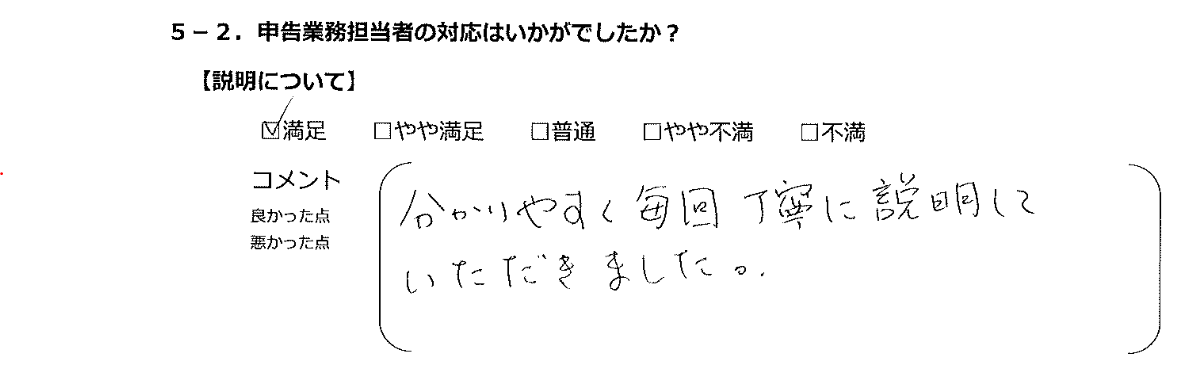 ５－２．申告業務担当者の対応はいかがでしたか？
【説明について】
☑満足 □やや満足 □普通 □やや不満 □不満
コメント
良かった点
悪かった点
分かりやすく毎回丁寧に説明して
いただきました。